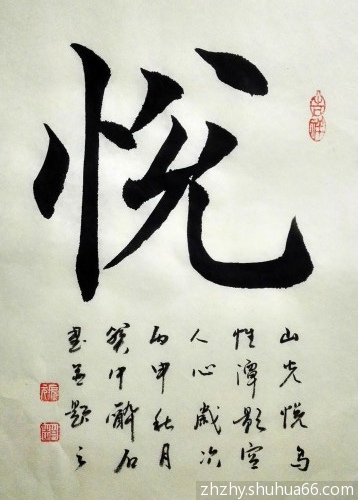 悦
吉祥
山光悦鸟
性潭影空
人心歲次
丙申秋月
中醉石
書並題之
zhzhy.shuhua66.com